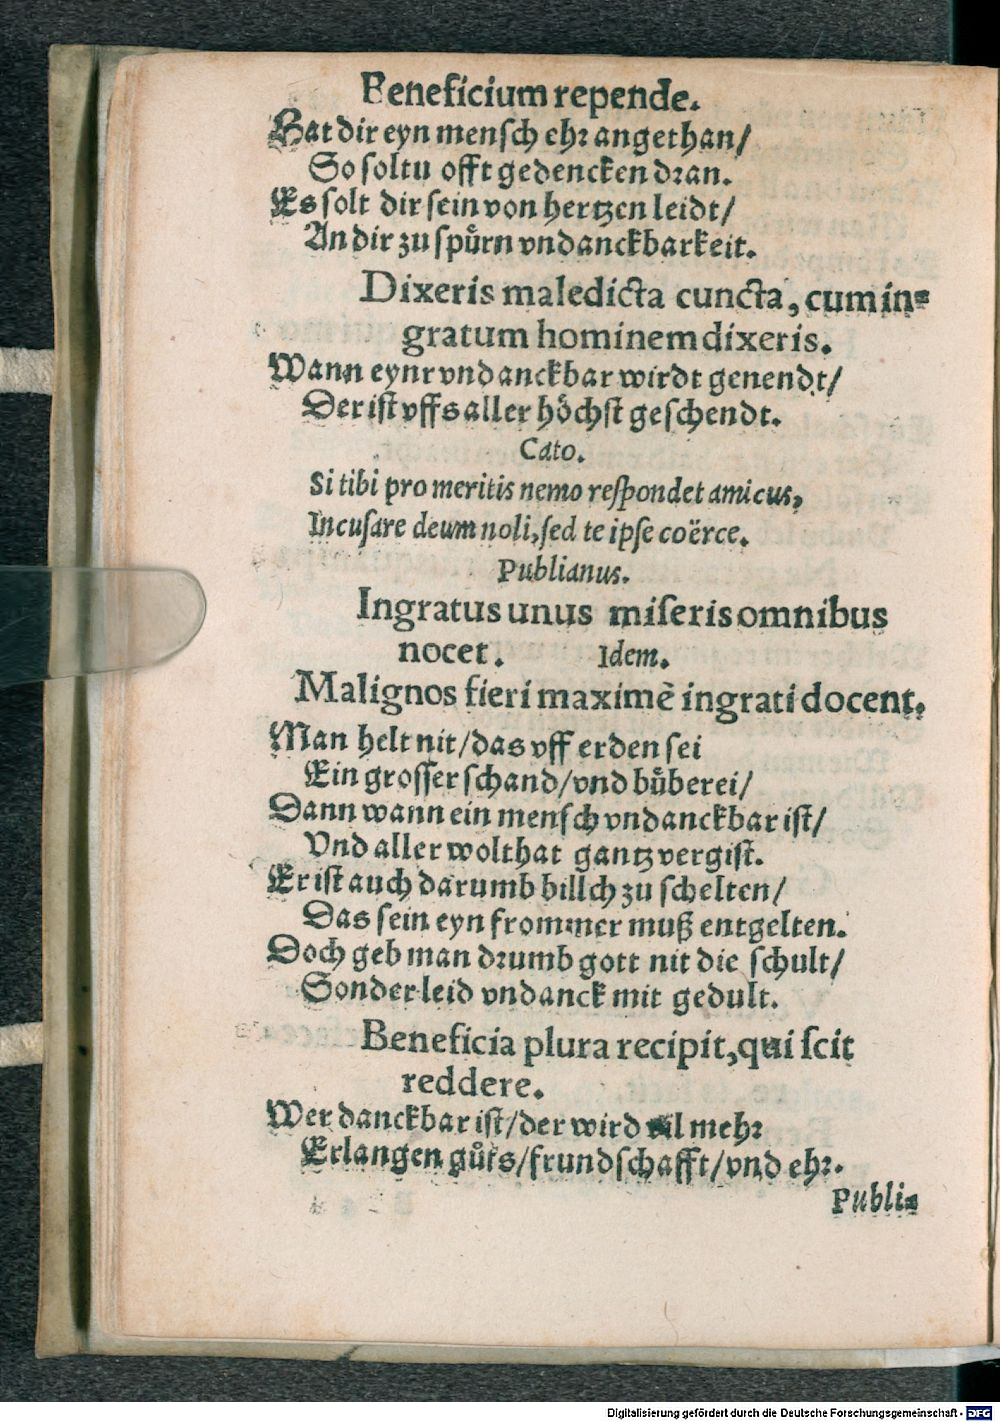 Beneficium repende.
Hat dir eyn mensch ehr angethan/
So soltu offt gedencken dran.
Es solt dir sein von hertzen leidt/
An dir zu spuͤrn vndanckbarkeit.
Dixeris maledicta cuncta, cum in-
gratum hominem dixeris.
Wann eynr vndanckbar wirdt genendt/
Der ist vffs aller hoͤchst geschendt.
Cato.
Si tibi pro meritis nemo respondet amicus,
Incusare deum noli, sed te ipse coërce.
Publianus.
Ingratus unus miseris omnibus
nocet. Idem.
Malignos fieri maximè ingrati docent.
Man helt nit/das vff erden sei
Ein grosser schand/vnd buͤberei/
Dann wann ein mensch vndanckbar ist/
Vnd aller wolthat gantz vergist.
Er ist auch darumb billch zu schelten/
Das sein eyn frommer muß entgelten.
Doch geb man drumb gott nit die schult/
Sonder leid vndanck mit gedult.
Beneficia plura recipit, qui scit
reddere.
Wer danckbar ist/der wird vil mehr
Erlangen guͤts/frundschafft/vnd ehr.
Publi-
Digitalisierung gefördert durch die Deutsche Forschungsgemeinschaft - DFG